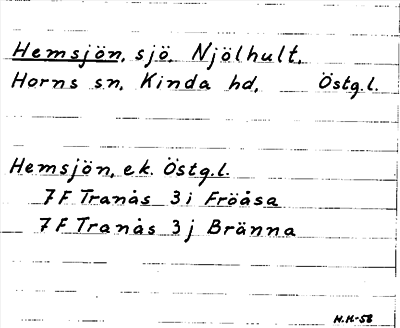 Hemsjön, sjö. Njölhult,
Horns sn, Kinda hd, Östg.l.
Hemsjön, ek. Östg.l.
7F Tranås 3i Fröåsa
7F Tranås 3j Bränna
H.H-58